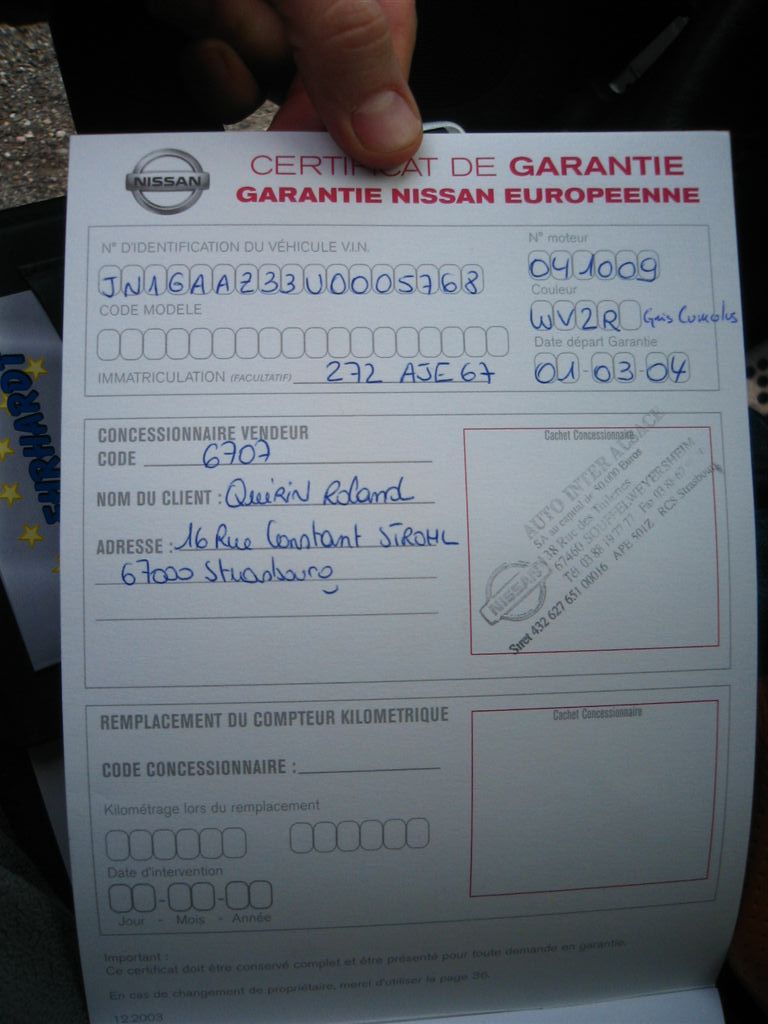 NISSAN
CERTIFICAT DE GARANTIE
GARANTIE NISSAN EUROPEENNE
N° D'IDENTIFICATION DU VÉHICULE V.I.N.
JN1GAAZ33U0005768
CODE MODELE
IMMATRICULATION (FACULTATIF) 272 AJE 67
N° moteur
041009
Couleur
WV2R Gris
Date départ Garantie
01-03-04
EHRHARDT
CONCESSIONNAIRE VENDEUR
CODE 6707
NOM DU CLIENT : Quirin Roland
ADRESSE : 16 Rue Constant STROHL
67000 Strasbourg
Cachet Concessionnaire
AUTO INTER ALSACE
SA au capital de 40 000 Euros
38 Rue des Tuileries
67460 SOUFFELWEYERSHEIM
Siret 432 627 651 00016 APE 501Z RCS Strasbourg
NISSAN
REMPLACEMENT DU COMPTEUR KILOMETRIQUE
CODE CONCESSIONNAIRE :
Kilométrage lors du remplacement
Date d'intervention
Jour - Mois - Année
Cachet Concessionnaire
Important :
Ce certificat doit être conservé complet et être présenté pour toute demande en garantie.
En cas de changement de propriétaire, merci d'utiliser la page 36.
12.2003